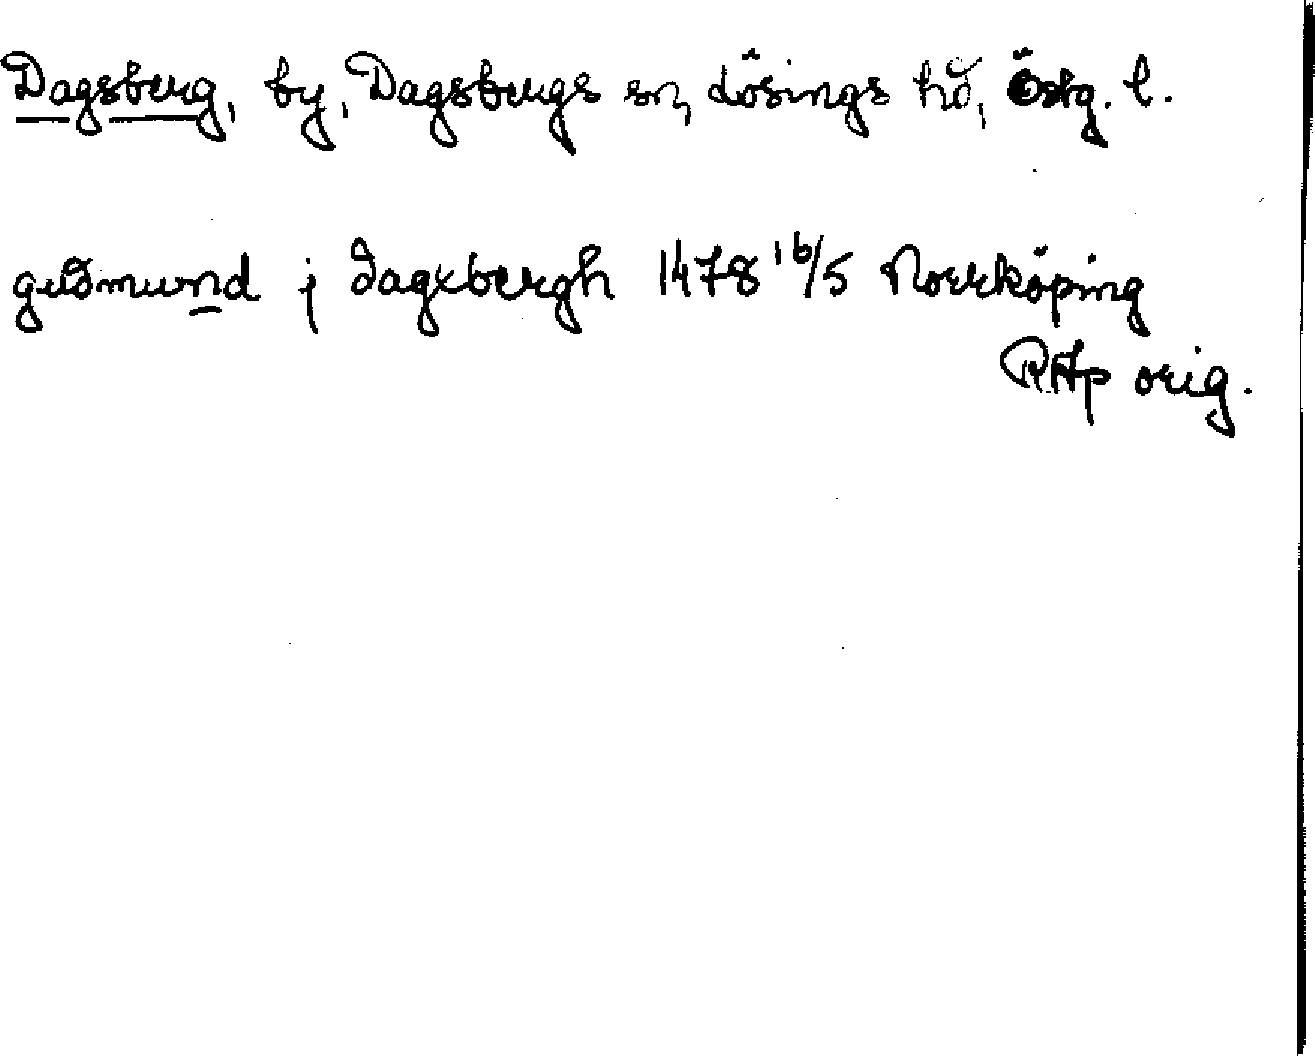 Dagsberg, by, Dagsbergs sn, Lösings hd, Östg. l.
gudmund j dagxbergh 1478 16/5 Norrköping
RAp orig.